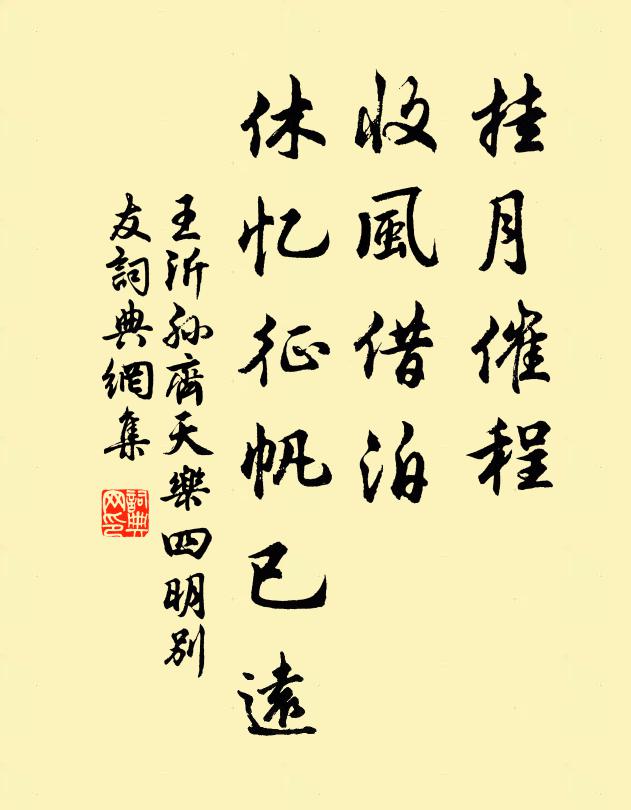 挂月催程
收風借泊
休忆征帆已遠
王沂孙齊天樂四明别
友詞典網集
詞典网印